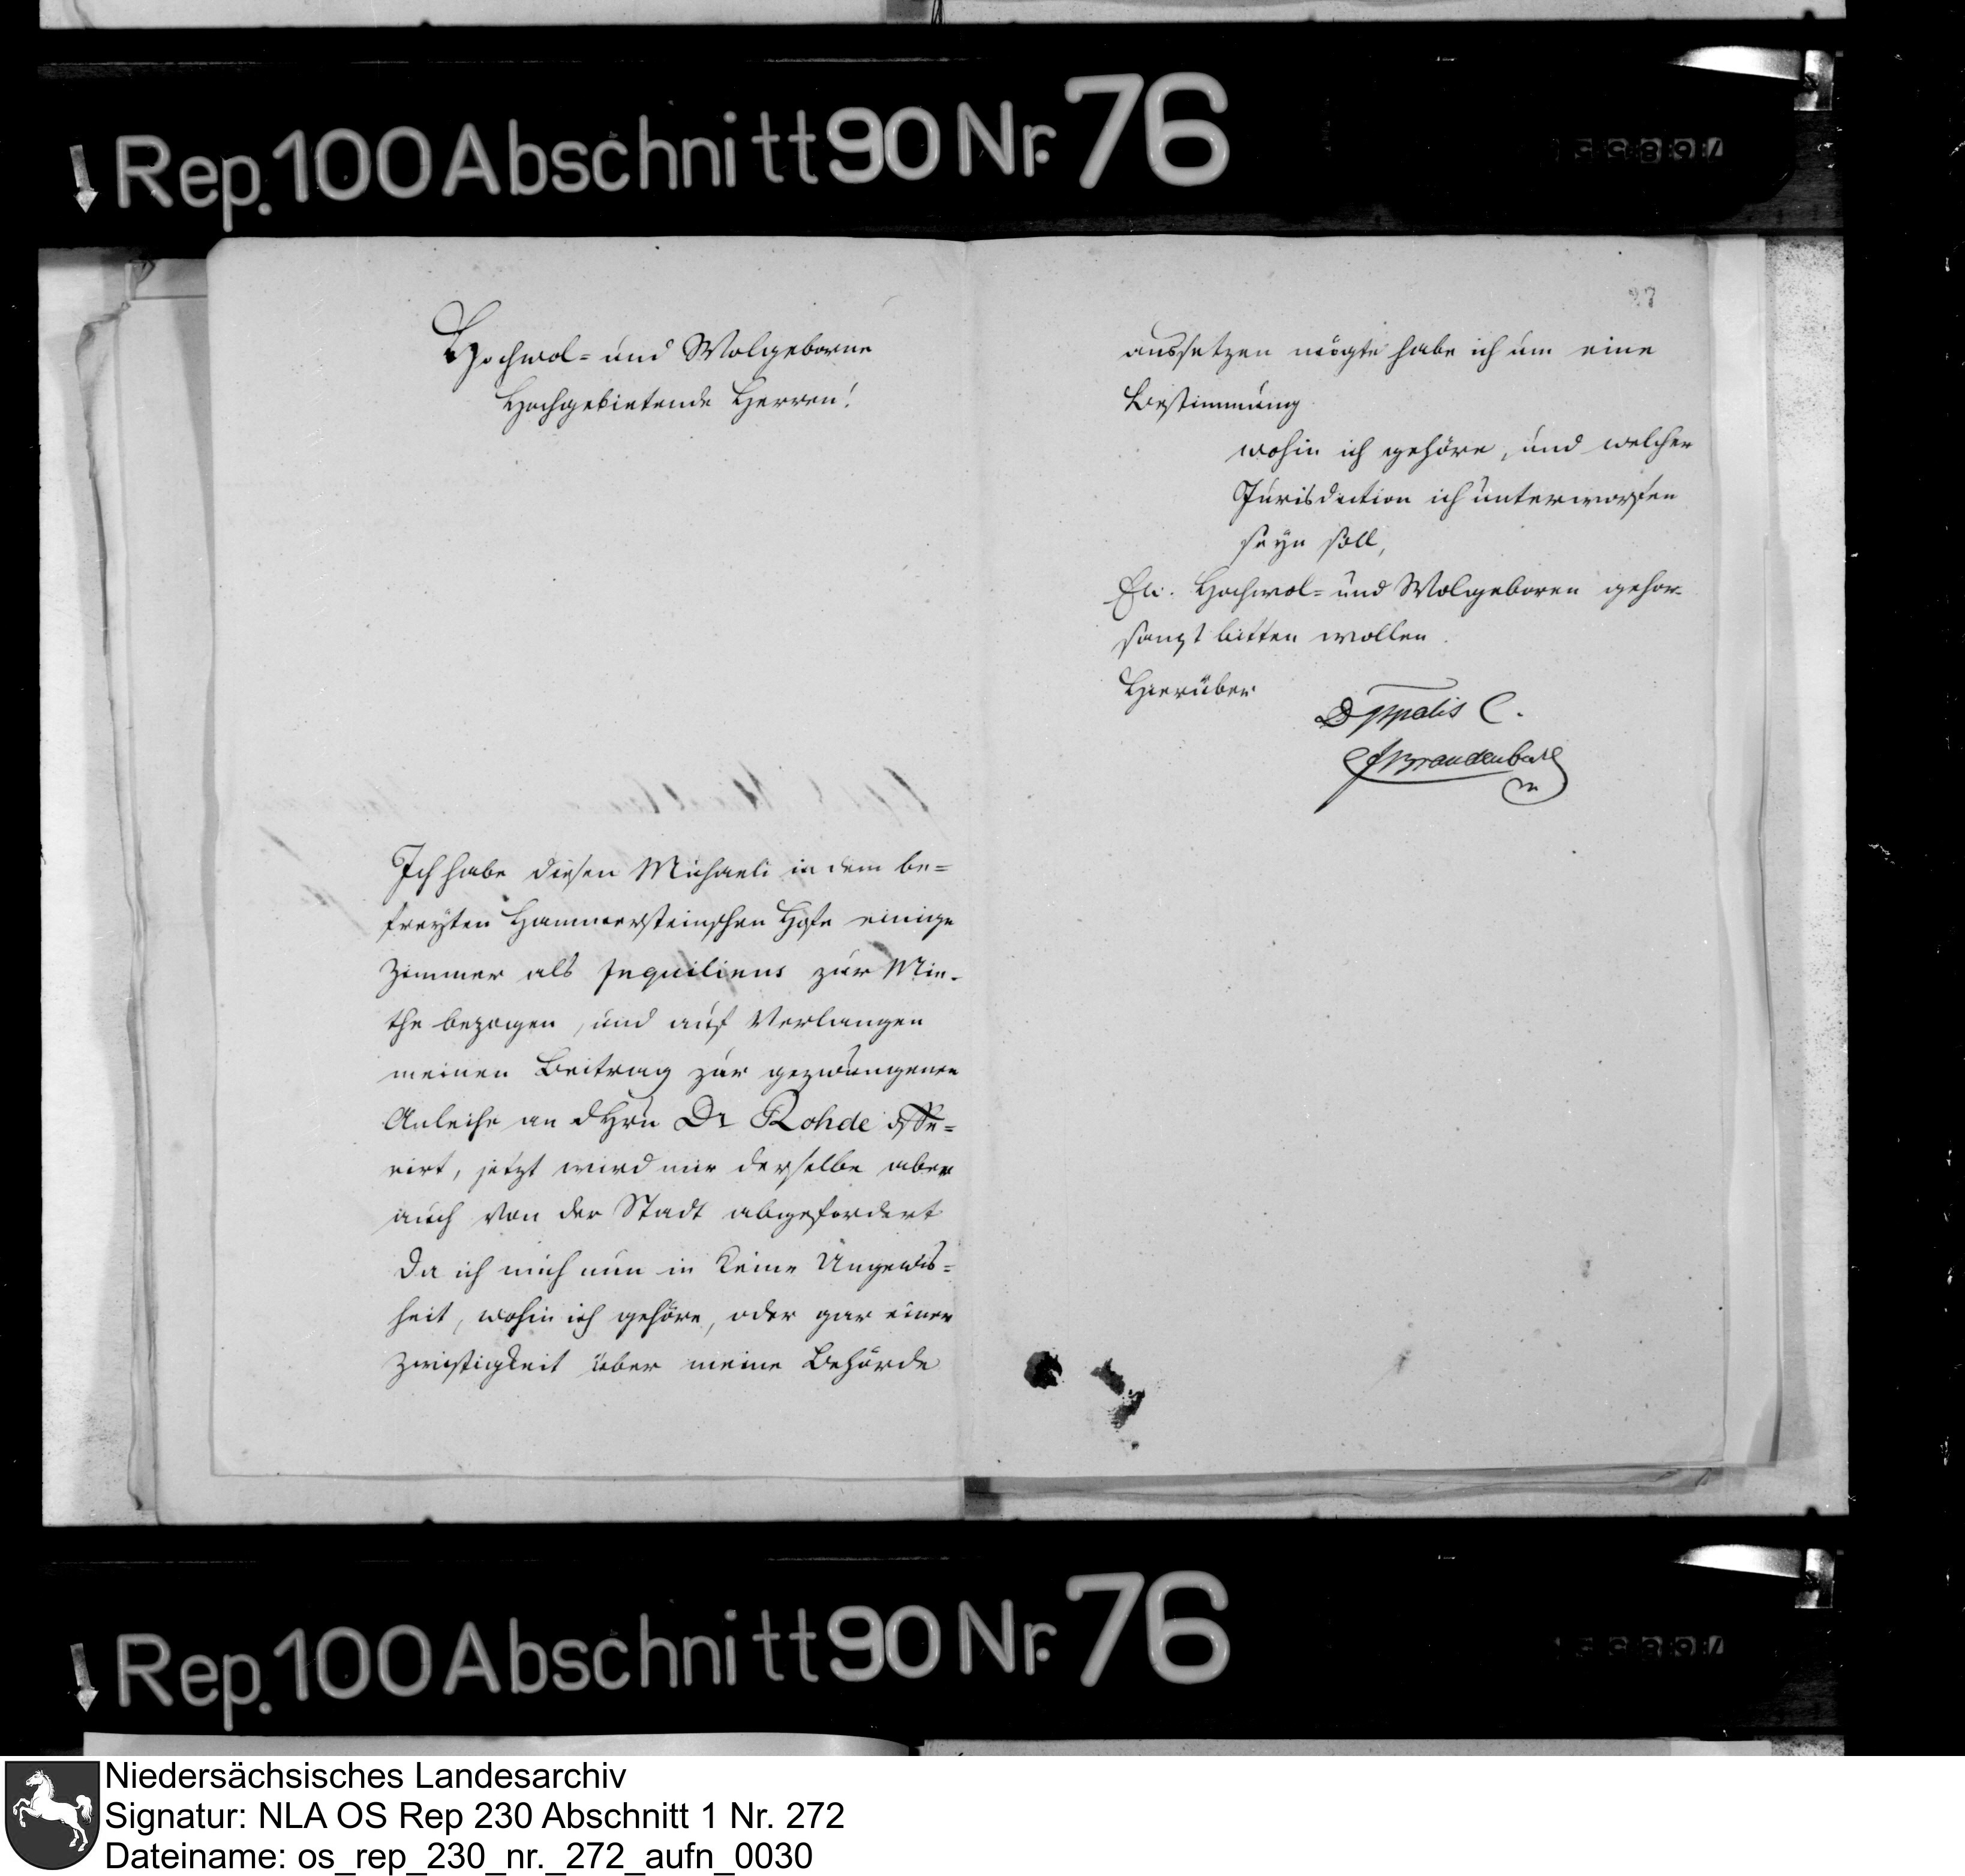 Rep. 100 Abschnitt 90 Nr. 76
Hochwol= und Wolgeborne
Hochgebietende Herren!
Ich habe diesen Michaeli in dem be=
freyten Hammersteinschen Hofe einige
Zimmer als Inquilinus zur Mie-
the bezogen, und auf Verlangen
meinen Beitrag zur gezwungenen
Anleihe an d Hrn Dr Rohde offe=
rirt, jetzt wird mir derselbe aber
auch von der Stadt abgefordert
Da ich mich nun in keine Ungewis=
heit, wohin ich gehöre, oder gar einer
Zwistigkeit über meine Behörde
27
aussetzen mögte habe ich um eine
Bestimmung
wohin ich gehöre, und welcher
Jurisdiction ich unterworfen
seyn soll,
Ew. Hochwol= und Wolgeboren gehor-
samst bitten wollen.
Hierüber
C.
Brandenburg
Rep. 100 Abschnitt 90 Nr. 76
Niedersächsisches Landesarchiv
Signatur: NLA OS Rep 230 Abschnitt 1 Nr. 272
Dateiname: os_rep_230_nr._272_aufn_0030